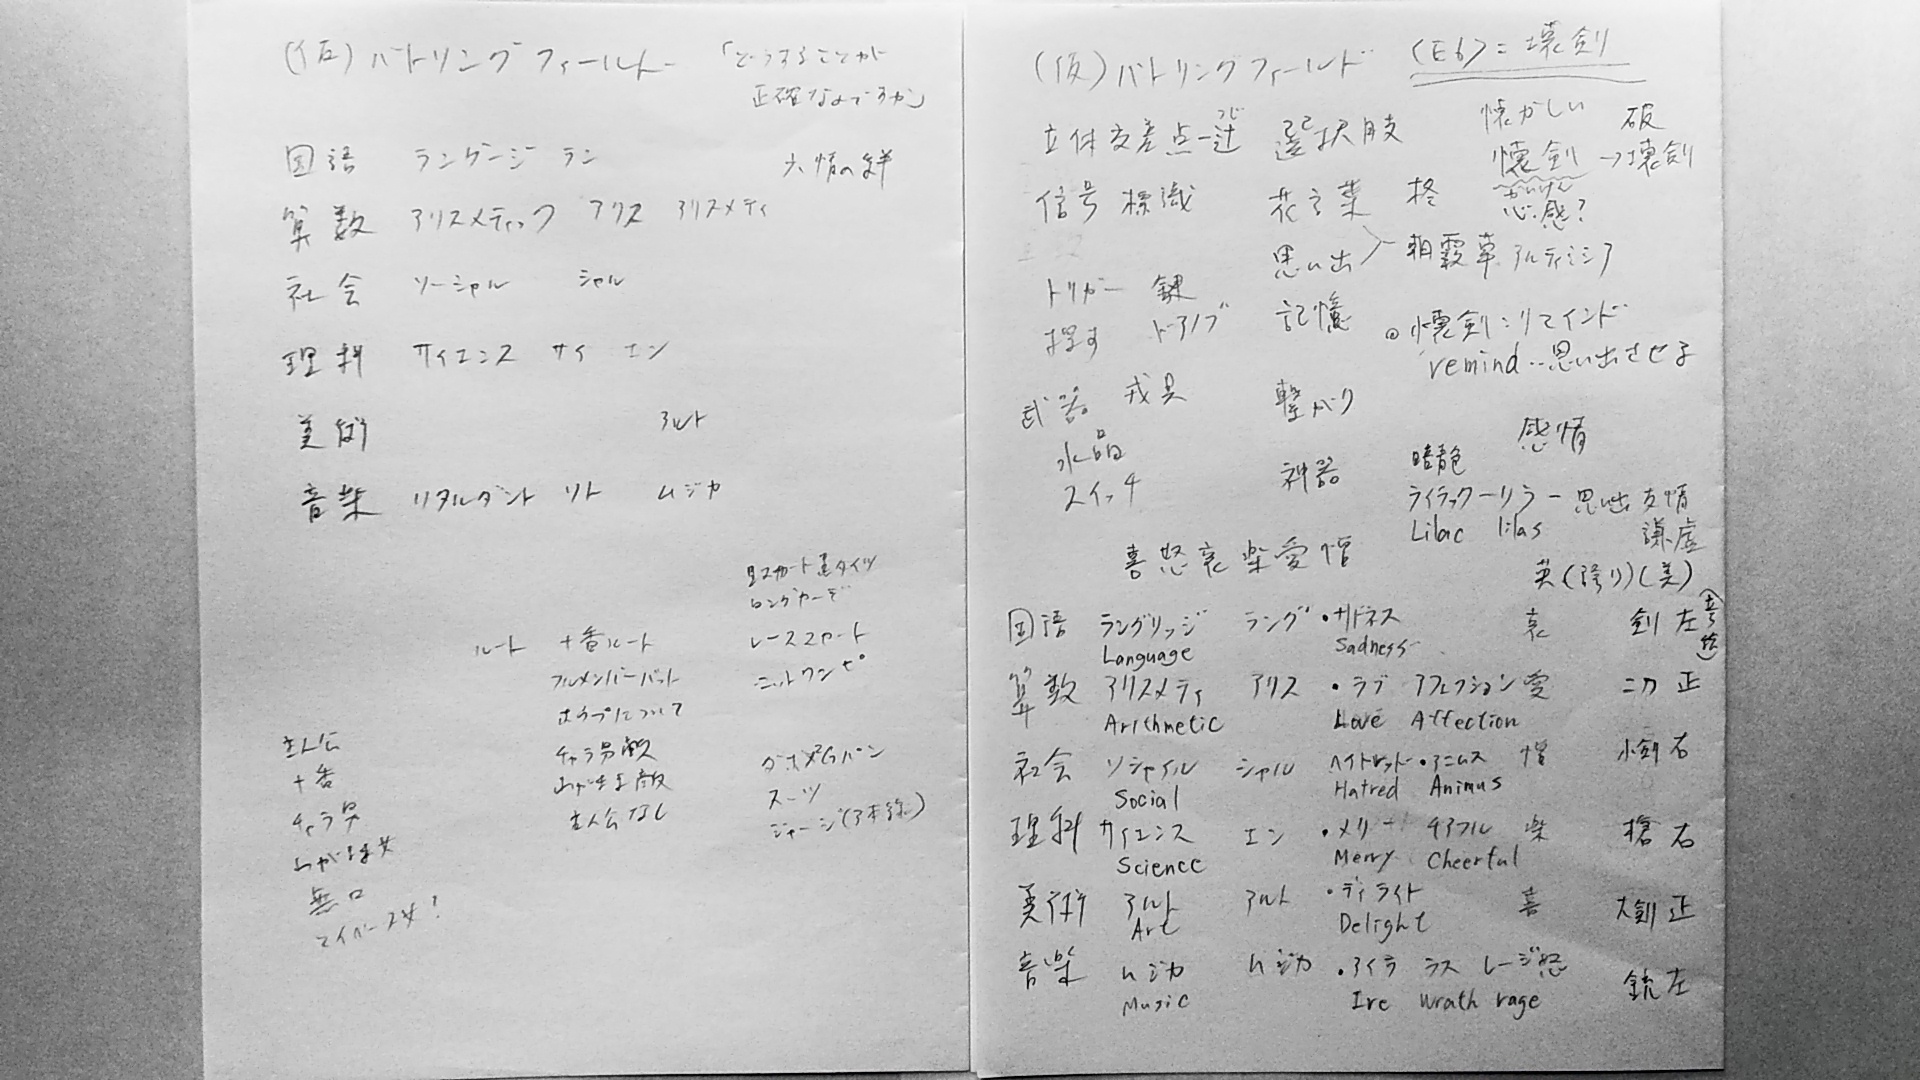 (仮)バトリングフィールド 「どうすることが
正確なんですか」
国語 ラングージ ラン 六情の絆
算数 アリスメティック アリス アリスメティ
社会 ソーシャル シャル
理科 サイエンス サイ エン
美術 アルト
音楽 リタルダント リト ムジカ
ロングカーデ
ルート 十番ルート レーススカート
フルメンバーバット ニットワンピ
ホープについて
主人公 チャラ男敵
十番 わがまま敵 スーツ
チャラ男 主人公なし
わがまま女
無口
マイペース女?
(仮)バトリングフィールド (E6)=壊剣
立体交差点―辻 選択肢 懐かしい 破
つじ
懐剣→壊剣
かいけん
信号 標識 花言葉 柊 感?
思い出 朝霞草 アルティミシア
トリガー 鍵
探す ドアノブ 記憶 ◎懐剣:リマインド
remind‥思い出させる
武器 戎具 繋がり
水晶 感情
スイッチ 神器 暗色
ライラックーリラー思い出 友情
Lilac lilas 謙虚
喜怒哀楽愛憎
英(誇り)(美)
国語 ラングリッジ ラング ・サドネス 哀 剣 左
Language Sadness
算数 アリスメティ アリス ・ラブ アフェクション 愛 二刀 正
Arithmetic Love Affection
社会 ソシャイル シャル ヘイトレッド・アニムス 憎 小剣 右
Social Hatred Animus
理科 サイエンス エン ・メリー チアフル 楽 槍 右
Science Merry Cheerful
美術 アルト アルト ・ディライト 喜 大剣 正
Art Delight
音楽 ムジカ ムジカ ・アイラ ラス レージ 怒 銃 左
Music Ire wrath rage